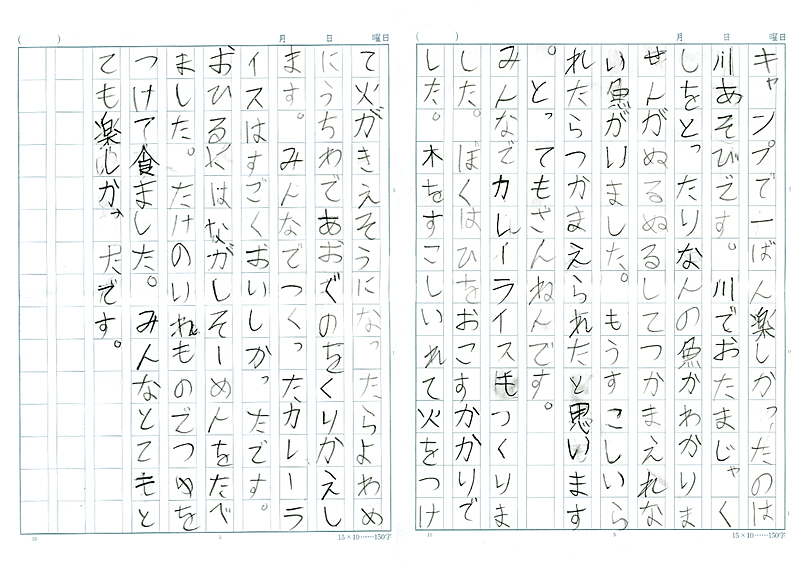 ( ) 月 日 曜日
キャンプで一ばん楽しかったのは
川あそびです。川でおたまじゃく
しをとったりなんの魚かわかりま
せんがぬるぬるしてつかまえれな
い魚がいました。もうすこしいら
れたらつかまえられたと思います
。とってもざんねんです。
みんなでカレーライスもつくりま
した。ぼくはひをおこすかかりで
した。木をすこしいれて火をつけ
15×10……150字
( ) 月 日 曜日
て火がきえそうになったらよわめ
にうちわであおぐのをくりかえし
ます。みんなでつくったカレーラ
イスはすごくおいしかったです。
おひるにはながしそーめんをたべ
ました。たけのいれものでつゆを
つけて食ました。みんなとてもと
ても楽しかったです。
15×10……150字